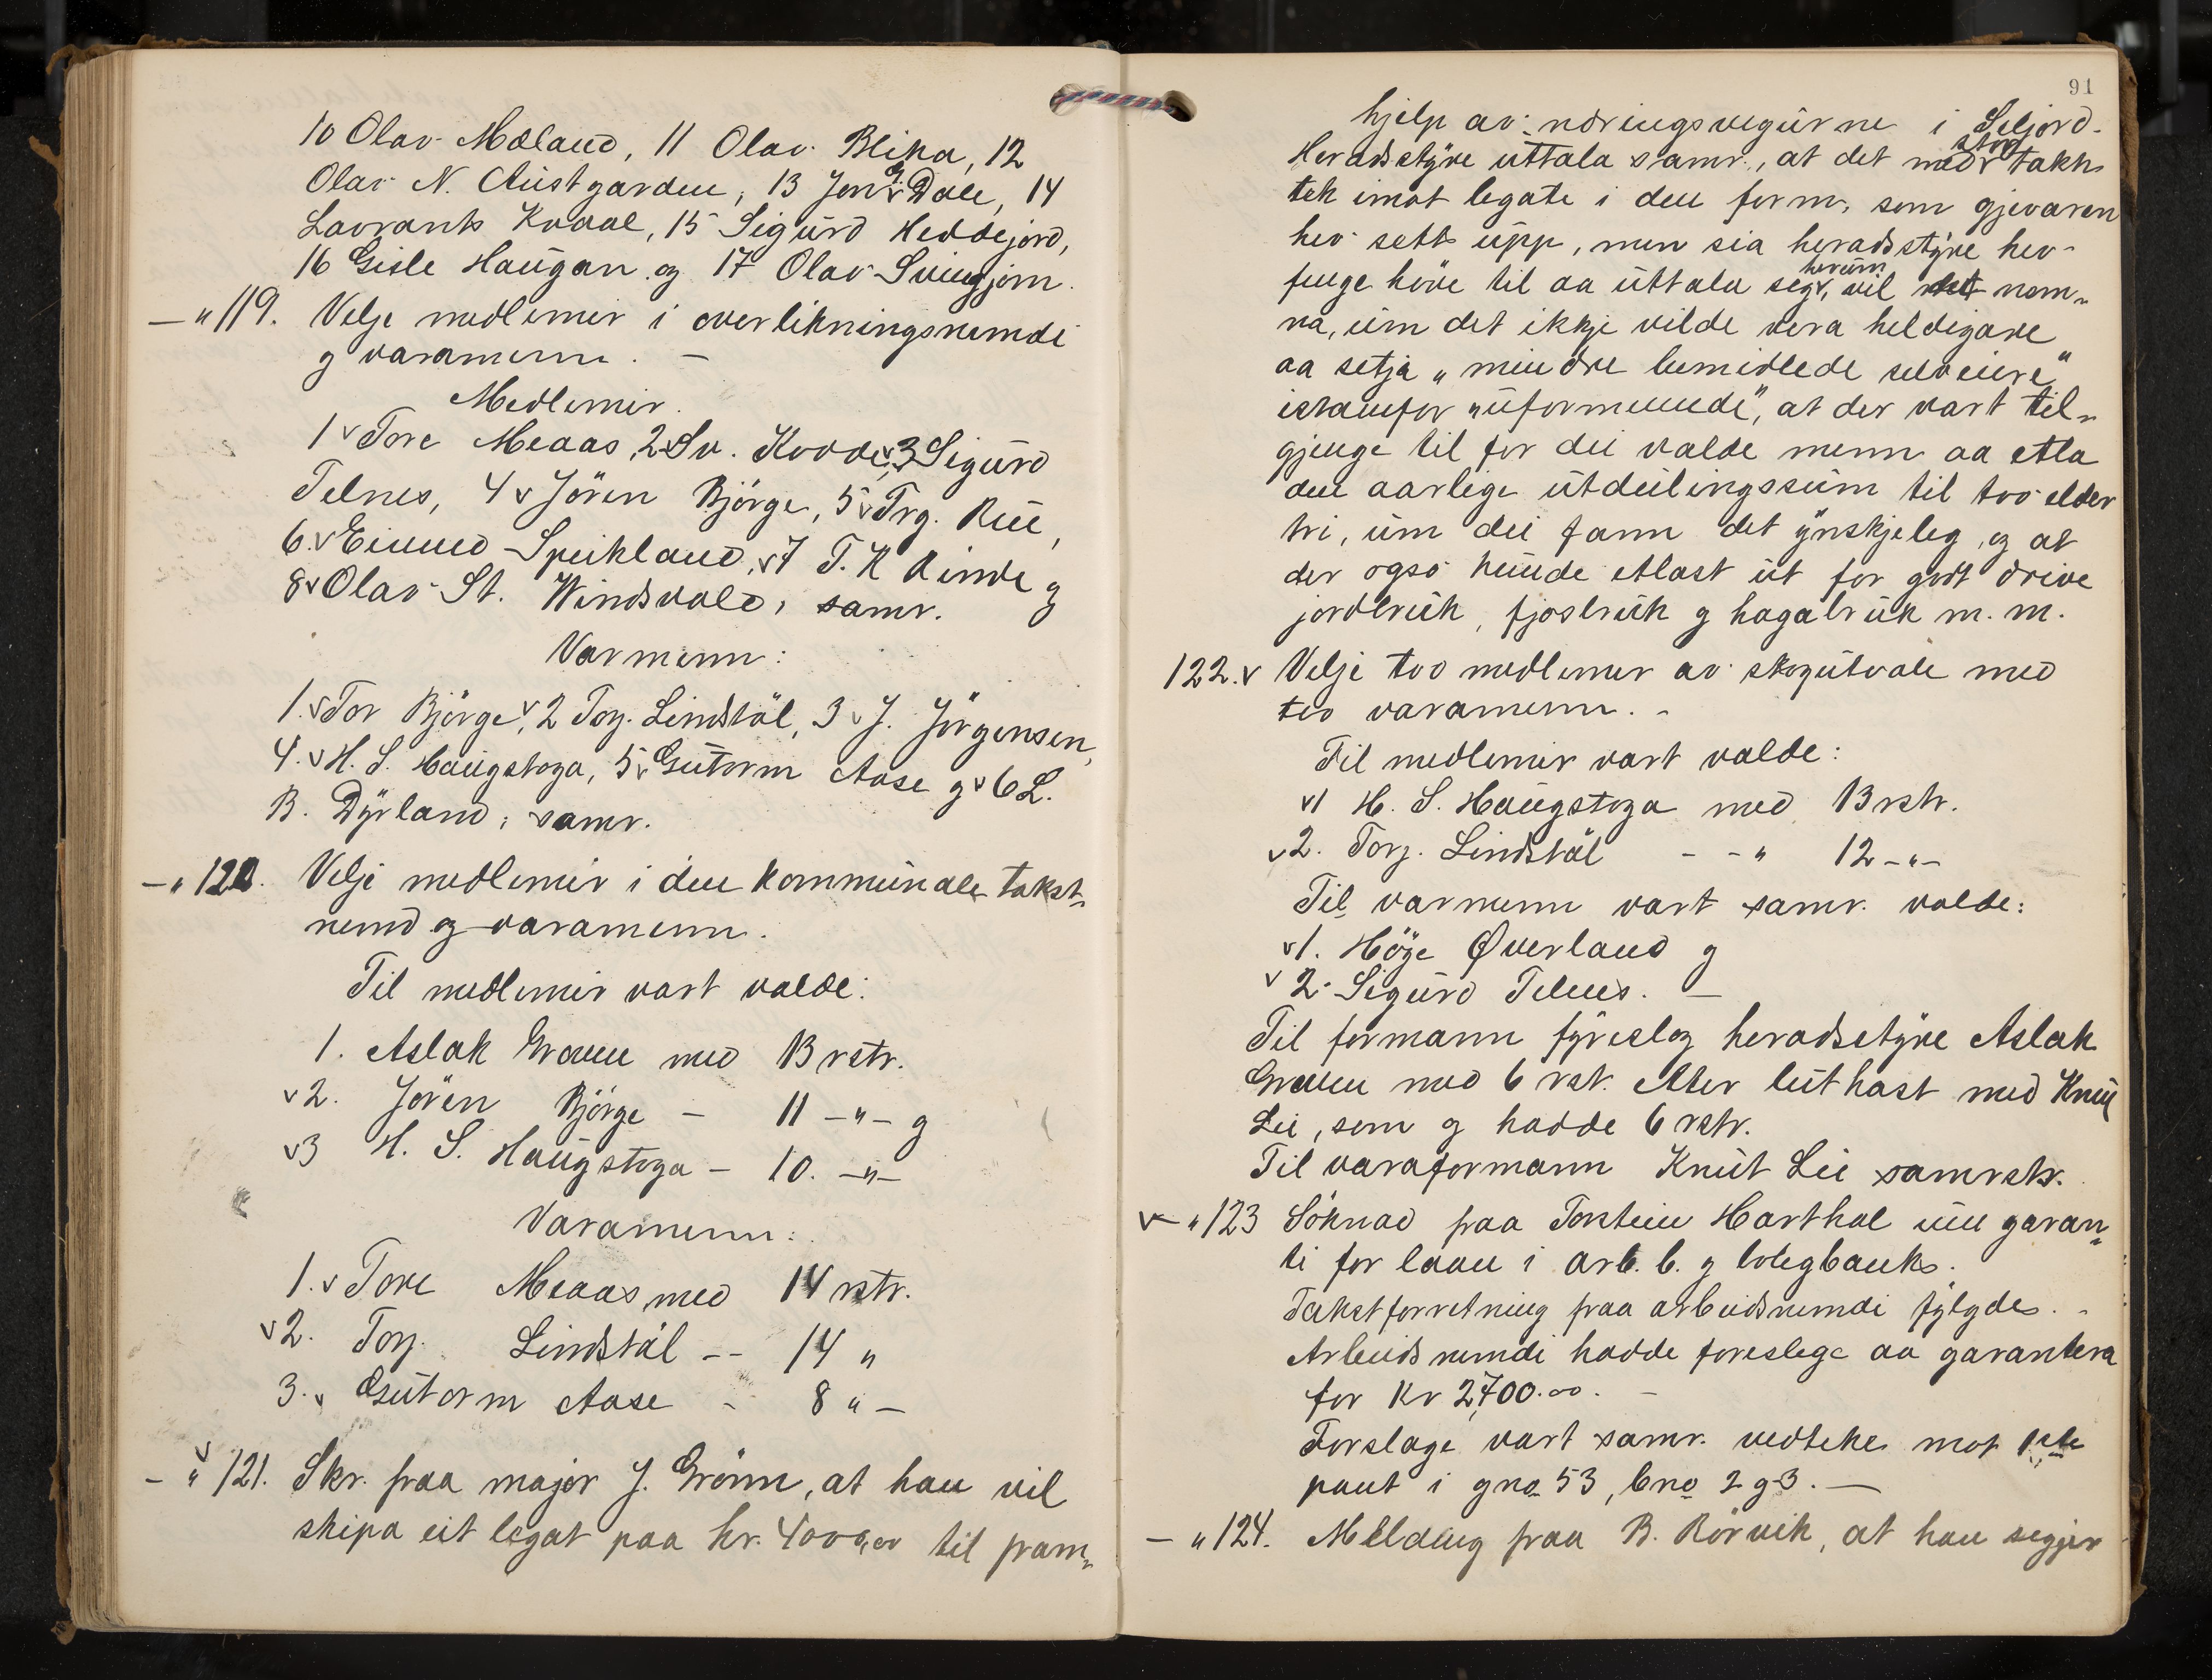 10 Olav Mæland, 11 Olav Blika, 12
Olav N. Austgarden, 13 Jon G. Dale, 14
Lavrants Kvaal, 15 Sigurd Heddejord,
16 Gisle Haugan og 17 Olav Svingjom.
— " 119. Velje medlemir i overlikningsnemdi
og varamenn. —
Medlemir.
1 Tore Meaas, 2 Sv. Kovde, 3 Sigurd
Telnes, 4 Jören Björge, 5 Trg. Rue,
6. Eivind Speikland, 7 T. K Rinde og
8 Olav St. Windsvald, samr.
Varmenn:
1. Tor Björge, 2 Torj. Lindstöl, 3 J. Jörgensen,
4. H. S. Haugstoga, 5 Gutorm Aase og 6 L.
B. Dyrland, samr.
— " 120. Velje medlemir i den kommunale takst-
nemd og varamenn.
Til medlemir vart valde:
1. Aslak Graven med 13 rstr.
2. Jören Björge — 11 — " — og
3 H. S. Haugstoga — 10. — " —
Varamenn:
1. Tore Meaas med 14 rstr.
2. Torj. Lindstöl -- 14 "
3. Gutorm Aase - 8 " —
— " 121. Skr. fraa major J. Grönn, at han vil
skipa eit legat paa kr. 4000,00 til fram-
91
hjelp av næringsvegurne i Seljord.
Heradsstyre uttala samr., at det med stor takk
tek imot legate i den form, som gjevaren
hev sett upp, men sia heradsstyre hev
fenge höve til aa uttala seg herum, vil nem-
na, um det ikkje vilde vera heldigare
aa setja "mindre bemidlede selveiere"
istanfor "uformuende", at der vart til-
gjenge til for dei valde menn aa etla
den aarlige utdeilingssum til tvo elder
tri, um dei fann det ynskjeleg, og at
der ogso kunde etlast ut for godt drive
jordbruk, fjosbruk og hagabruk m. m.
122. Velje tvo medlemer av skogutvale med
tvo varamenn. -
Til medlemir vart valde:
1 H. S. Haugstoga med 13 rstr.
2. Torj. Lindstöl - - " 12 - " -
Til varmenn vart samr. valde:
1. Höge Øverland og
2. Sigurd Telnes. —
Til formann fyreslog heradsstyre Aslak
Graven med 6 rst. etter luthast med Knut
Lie, som og hadde 6 rstr.
Til varaformann Knut Lie samrstr.
— " 123 Söknad fraa Torstein Harthol um garan-
ti for laan i arb. b. og boligbanks.
Takstforretning fraa arbeidsnemdi fylgde. -
Arbeidsnemdi hadde foreslege aa garantera
for Kr 2,700.00. —
Forslage vart samr. vedteke mot 1ste
pant i gno 53, bno 2 og 3. —
— " 124. Melding fraa B. Rörvik, at han segjer